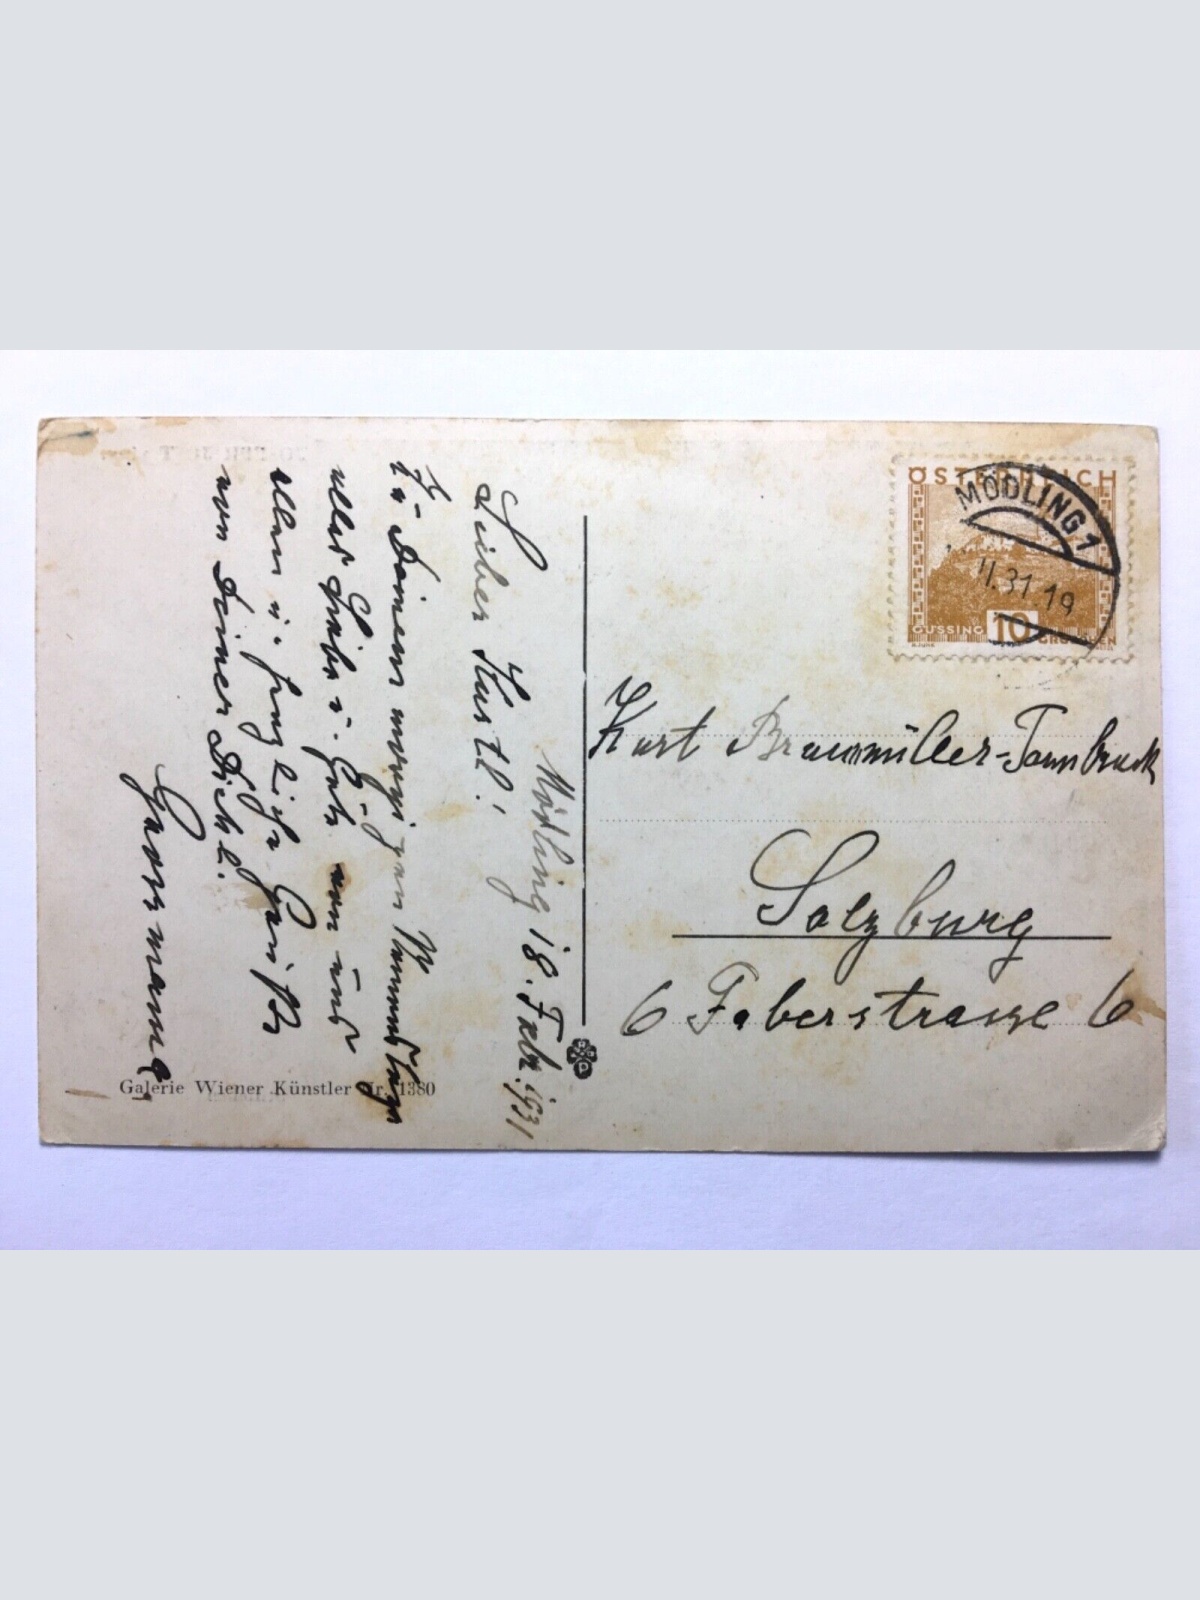 Mödling 18. Febr. 1931
Lieber Kurtl!
Zu Deinem morgigen Namenstage
alles Liebe u. Gute von uns
allen u. herzliche Grüße
von Deiner Dichl.
Grossmama
Galerie Wiener Künstler Nr. 1380
ÖSTERREICH
GÜSSING 10 GROSCHEN
MÖDLING 1
II.31 19
Kurt Braumüller-Tannbruck
Salzburg
6 Faberstrasse 6